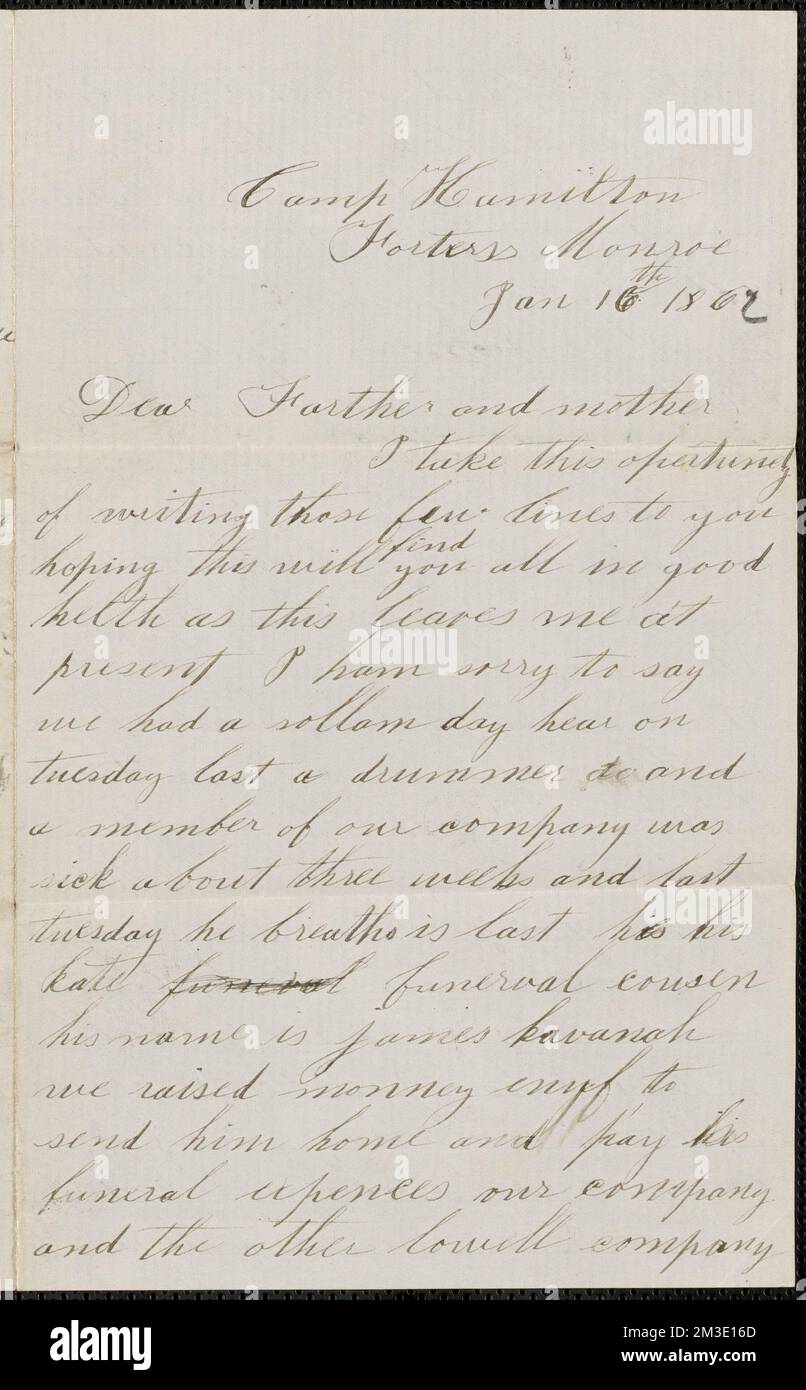 Camp Hamilton
Forterss Monroe
Jan 16th 1862
Dear Farther and mother
I take this opertunety
of writing those few lines to you
hoping this will find you all in good
helth as this leaves me at
present I ham sorry to say
we had a sollam day hear on
tuesday last a drummer and
a member of our company was
sick about three weeks and last
tuesday he breaths is last his
kate funeral funerval cousen
his name is james kavanah
we raised monney enuf to
send him home and pay his
funeral expences our company
and the other lowell company
alamy
alamy
a
a
a
a
a
a
alamy
Image ID: 2M3E16D
www.alamy.com